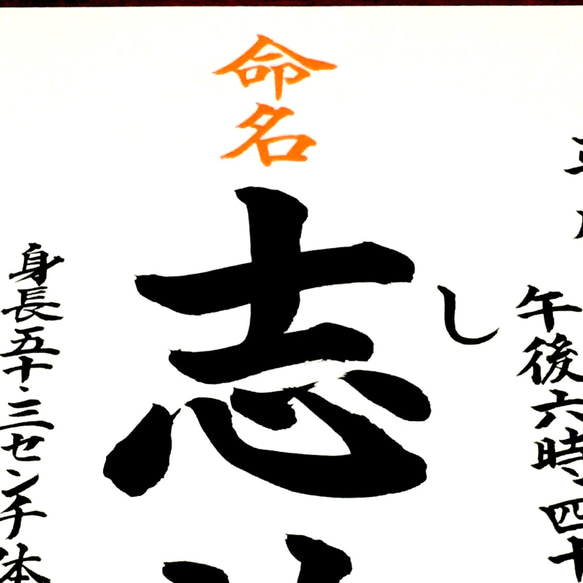 午後六時、四十
命名
志
し
身長五十・三センチ体